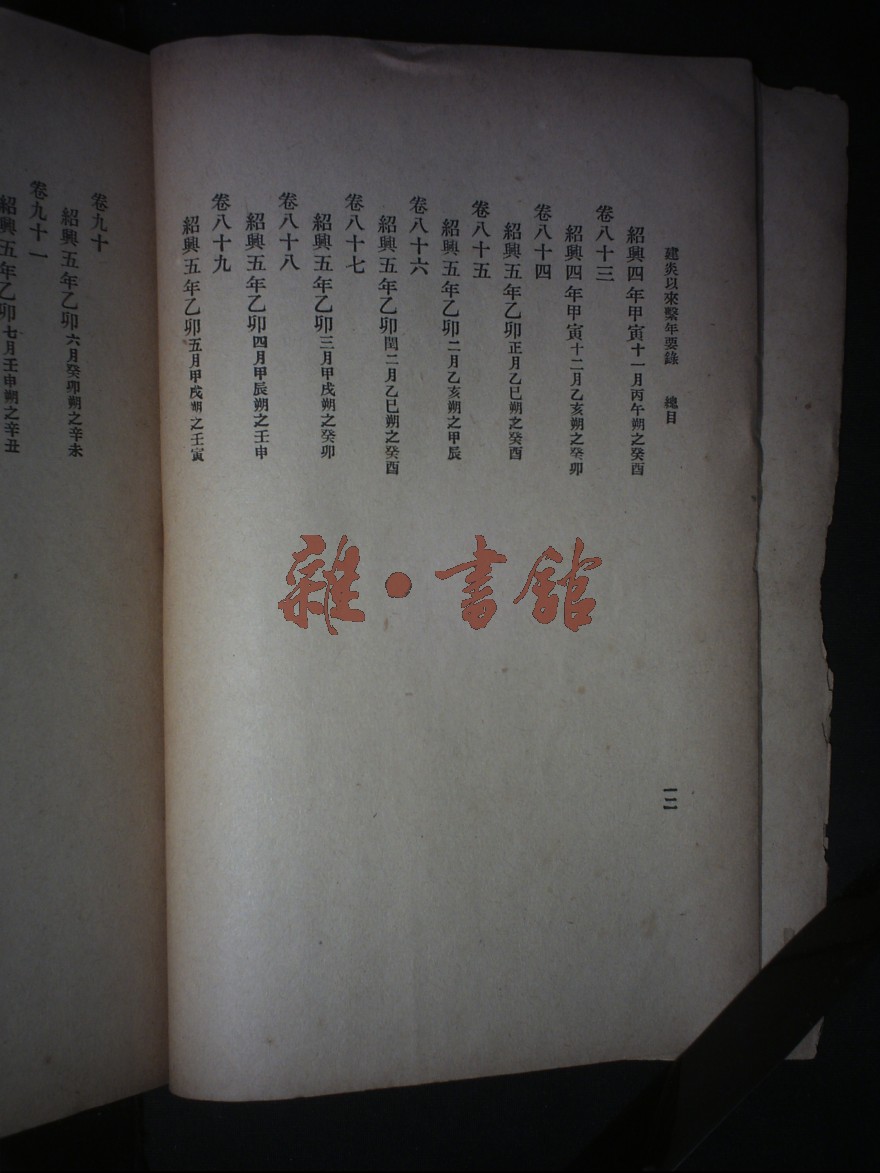 建炎以來繫年要錄 總目
一二
紹興四年甲寅十一月丙午朔之癸酉
卷八十三
紹興四年甲寅十二月乙亥朔之癸卯
卷八十四
紹興五年乙卯正月乙巳朔之癸酉
卷八十五
紹興五年乙卯二月乙亥朔之甲辰
卷八十六
紹興五年乙卯閏二月乙巳朔之癸酉
卷八十七
紹興五年乙卯三月甲戌朔之癸卯
卷八十八
紹興五年乙卯四月甲辰朔之壬申
卷八十九
紹興五年乙卯五月甲戌朔之壬寅
卷九十
紹興五年乙卯六月癸卯朔之辛未
卷九十一
紹興五年乙卯七月壬申朔之辛丑
雜·書館